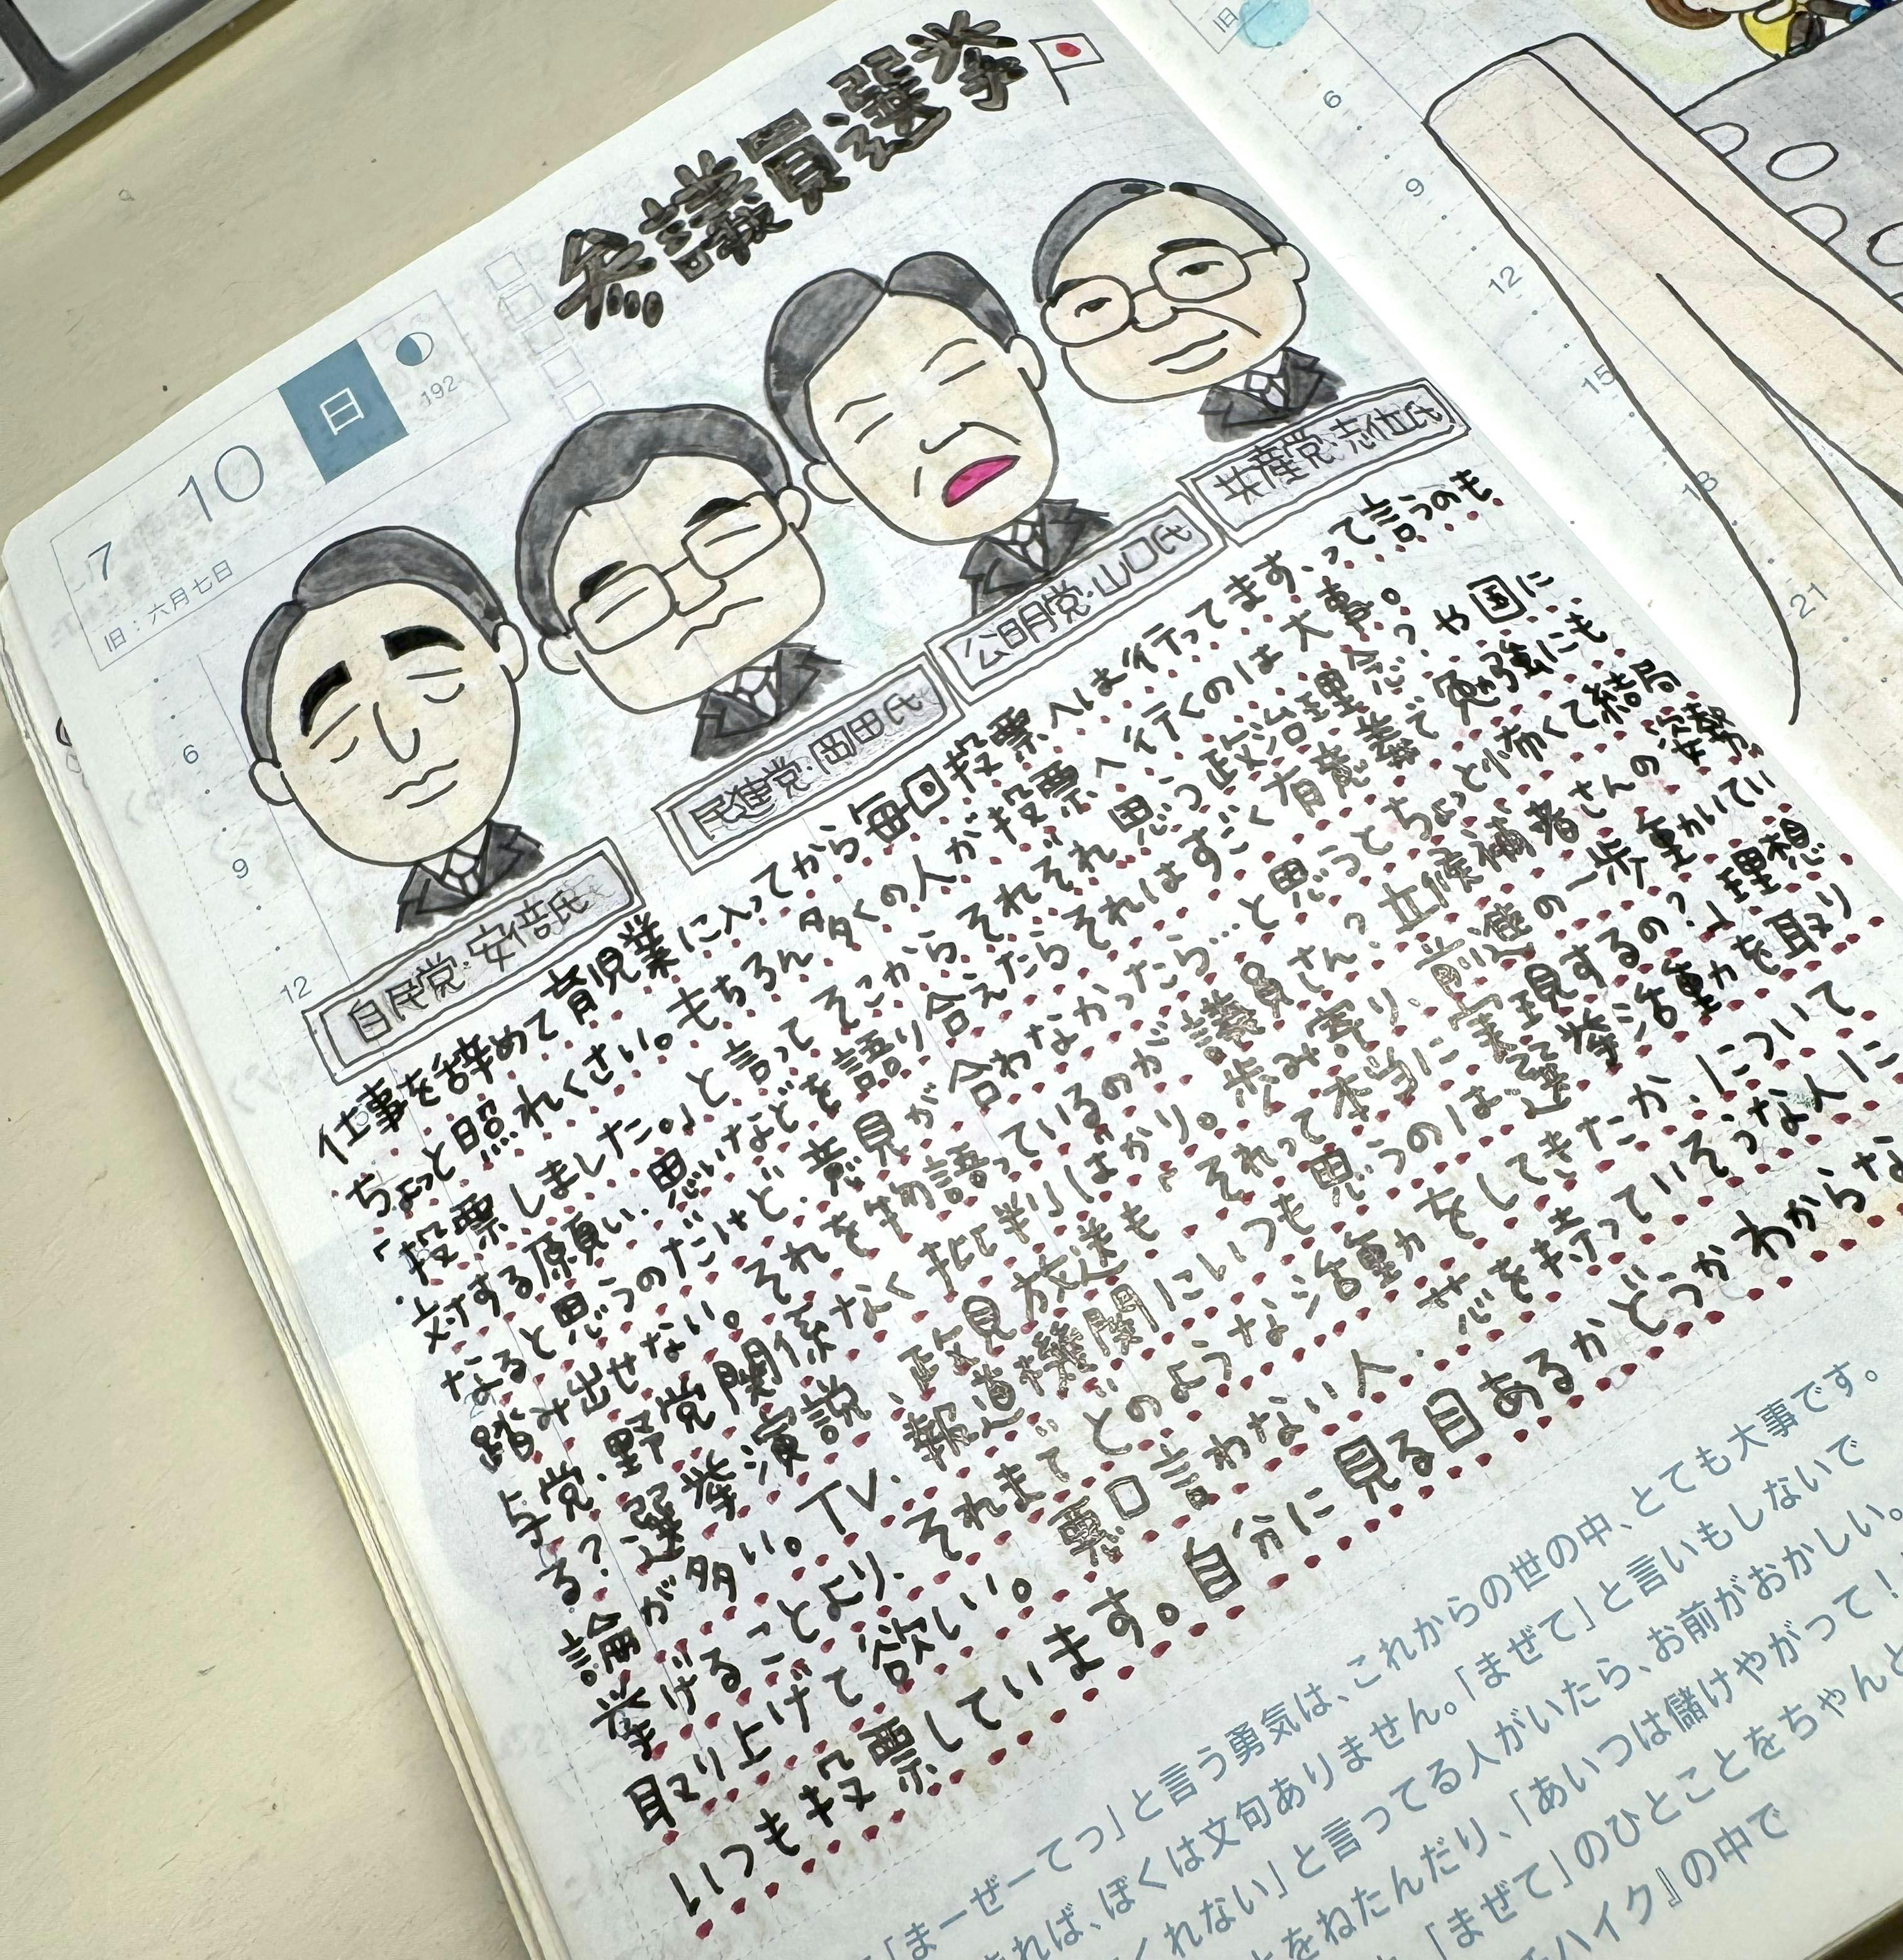 参議員選挙
7
10
日
192
旧：六月七日
自民党・安倍氏
民進党・岡田氏
公明党・山口氏
共産党・志位氏
6
9
12
仕事を辞めて育児業に入ってから毎回投票へは行ってます、って言うのも
ちょっと照れくさい。もちろん多くの人が投票へ行くのは大事。
「投票しました。」と言ってそこからそれぞれ思う政治理念？や国に
対する願い、思いなどを語り合えたらそれはすごく有意義で勉強にも
なると思うのだけど、意見が合わなかったら…と思うとちょっと怖くて結局
踏み出せない。それを物語っているのが議員さん？立候補者さんの姿勢。
与党・野党関係なく批判ばかり。歩み寄り、前進の一歩動かいてい
る？選挙演説、政見放送も「それって本当に実現するの？」理想
論が多い。TV、報道機関にいつも思うのは選挙活動を取り
挙げることより、それまでどのような活動をしてきたか、について
取り上げて欲しい。悪口言わない人、芯を持っていそうな人に
いつも投票しています。自分に見る目あるかどうかわからな
「まーぜーてっ」と言う勇気は、これからの世の中、とても大事です。
れば、ぼくは文句ありません。「まぜて」と言いもしないで
くれない」と言ってる人がいたら、お前がおかしい。
をねたんだり、「あいつは儲けやがって！
「まぜて」のひとことをちゃんと
ハイク』の中で
旧
6
9
12
15
18
21